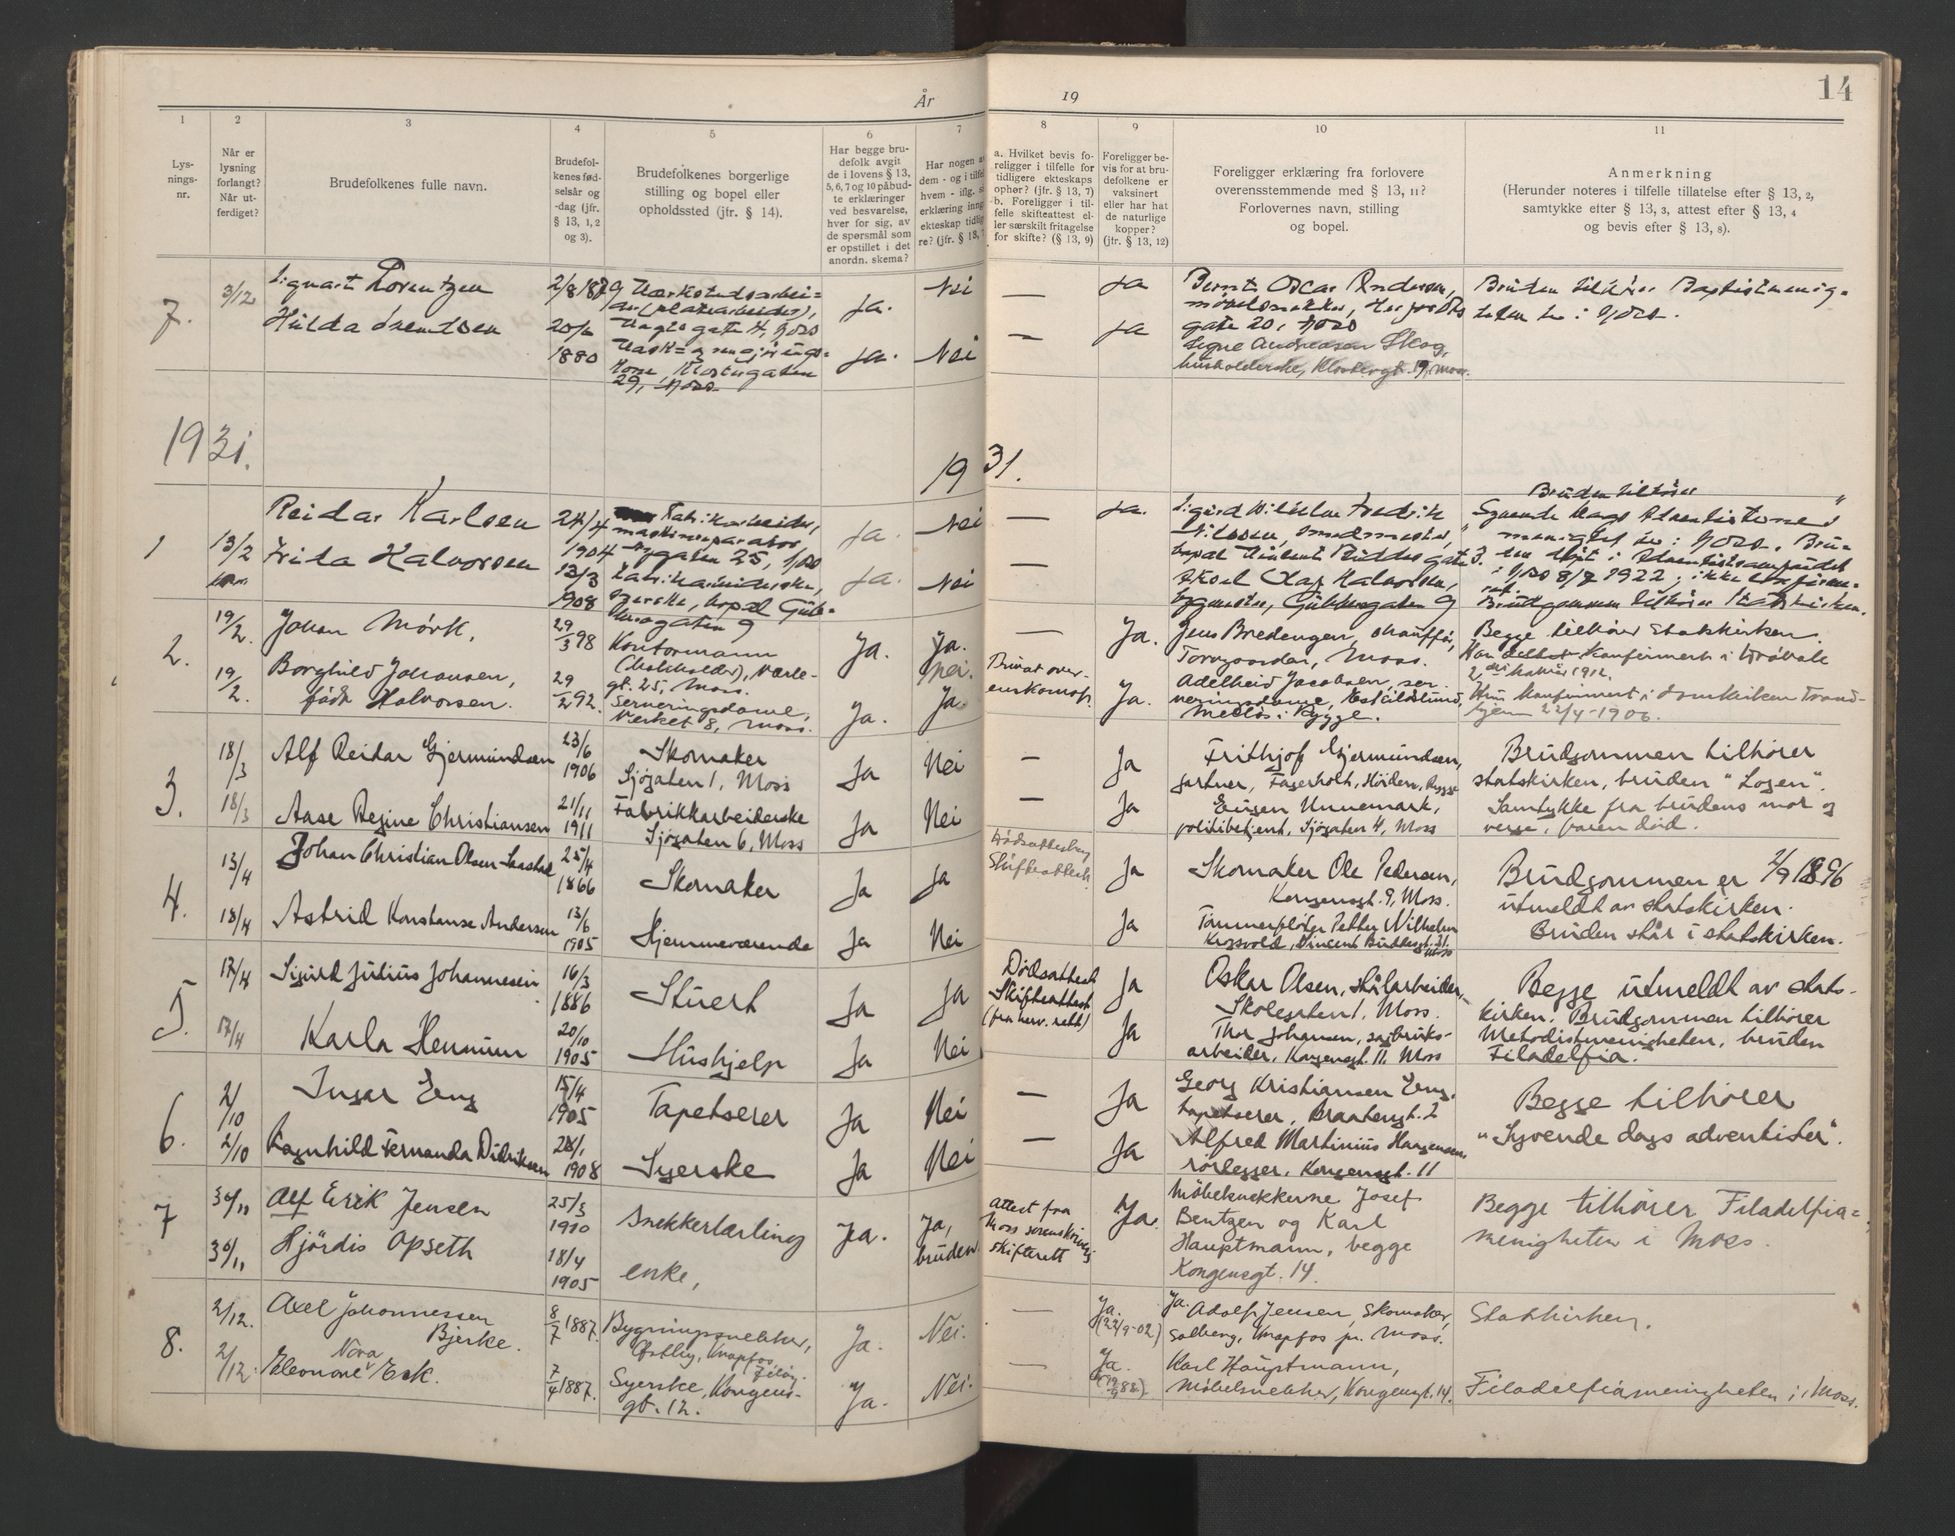 År
19
14
1
2
3
4
5
6
7
8
9
10
11
Lys-
nings-
nr.
Når er
lysning
forlangt?
Når ut-
ferdiget?
Brudefolkenes fulle navn.
Brudefol-
kenes fød-
selsår og
-dag (jfr.
§ 13, 1, 2
og 3).
Brudefolkenes borgerlige
stilling og bopel eller
opholdssted (jfr. § 14).
Har begge bru-
defolk avgit
de i lovens § 13,
5, 6, 7 og 10 påbud-
te erklæringer
ved besvarelse,
hver for sig, av
de spørsmål som
er opstillet i det
anordn. skema?
Har nogen a
dem - og i tilfel
hvem - iflg. si
erklæring inng
ekteskap tidlig
re? (jfr. § 13, 7
a. Hvilket bevis fo-
religger i tilfelle for
tidligere ekteskaps
ophør? (jfr. § 13, 7)
b. Foreligger i til-
felle skifteattest el-
ler særskilt fritagelse
for skifte? (§ 13, 9)
Foreligger be-
vis for at bru-
defolkene er
vaksinert
eller har hat
de naturlige
kopper?
(jfr. § 13, 12)
Foreligger erklæring fra forlovere
overensstemmende med § 13, 11?
Forlovernes navn, stilling
og bopel.
Anmerkning
(Herunder noteres i tilfelle tillatelse efter § 13, 2,
samtykke efter § 13, 3, attest efter § 13, 4
og bevis efter § 13, 8).
7.
3/12
Lorentzen
Hulda
2/8 1879
20/
1880
Verkstedsarbei-
der (platearbeider),
gate 4, Moss
kone, Klostergaten
29, Moss
Ja.
Ja.
Nei
Nei
—
—
Ja
Ja
Bernt Oscar Andersen,
gate 20, Moss
Signe Andreasen Skog,
husholderske, Klostergt. 19, Moss.
Bruden tilhører Baptistmenig-
heten her i Moss.
1931.
1931.
1
13/2
Reidar Karlsen
Frida Halvorsen
24/4
1904
13/3
1908
Fabrikarbeider,
maskinreparatør
gaten 25, Moss
Fabrikarbeiderske,
syerske, bopæl Gud-
gaten 9
Ja.
Ja.
Nei
Nei
—
—
Ja.
Sigurd Wilhelm Fredrik
Nilssen, smedmester,
bopæl Vincent Buddes gate 3.
Aksel Olaf Halvorsen,
bygmester, gaten 9
Bruden tilhører
Syvende dags Adventistenes
menighet her i Moss. Bru-
den døpt i Adventistsamfundet
i Moss 8/7 1922, ikke konfirme-
ret.
Brudgommen tilhører Statskirken.
2.
19/2.
19/2.
Johan Mørk,
Borghild Johansen,
født Halvorsen.
29/3 98
29/2 92.
Kontormann
(bokholder), Værle-
gt. 25, Moss.
Serveringsdame,
Verket 8, Moss.
Ja.
Ja.
Ja.
nei.
Ja.
—
Privat over-
enskomst.
Ja.
Ja.
Jens Bredengen, chauffør,
Torvgaarden, Moss.
Adelheid Jacobsen, ser-
veringsdame,
Melløs i Rygge.
Begge tilhører Statskirken.
Han døbt konfirmert i Drøbak
1912.
Hun konfirmert i Domkirken Trond-
hjem 22/4-1906.
3.
18/3
18/3
Alf Reidar Gjermundsen
Aase Regine Christiansen
23/6
1906
21/11
1911
Skomaker
Sjøgaten 1, Moss
Fabrikkarbeiderske
Sjøgaten 6, Moss
Ja
Ja
Nei
Nei
—
—
Ja
Ja
Frithjof Gjermundsen,
gartner, Fagerholt, Höiden, Rygge
Eugen Unnemark,
politibetjent, Sjøgaten 4, Moss
Brudgommen tilhører
statskirken, bruden "Logen".
Samtykke fra brudens mor og
verge, faren død.
4.
13/4
18/4
Johan Christian Olsen
Astrid Konstanse Andersen
25/4
1866
13/6
1905
Skomaker
Hjemmeværende
Ja
Ja
Ja
Nei
Dødsattest og
Skifteattest.
Ja
Ja
Skomaker Ole Pedersen,
Kongensgt. 9, Moss.
Tømmerfløter Petter Wilhelm
Krosvold, Vincent Buddesgt. 21.
Moss
Brudgommen er 2/9 1896
utmeldt av statskirken.
Bruden står i statskirken.
5.
17/4
17/4
Sigurd Julius Johannesen
Karla Hennum
16/3
1886
20/10
1905
Stuert
Hushjelp
Ja
Ja
Ja
Nei
Dødsattest
Skifteattest
(fra herv. rett)
Ja
Ja
Oskar Olsen, stålarbeider,
Skolegaten 1, Moss.
Thor Johansen, sagbruks-
arbeider, Kongensgt. 11 Moss
Begge utmeldt av stats-
kirken. Brudgommen tilhører
Metodistmenigheten, bruden
Filadelfia.
6.
2/10
2/10
Ingar Eng
Ragnhild Fernanda Didriksen
15/4
1905
28/1
1908
Tapetserer
Syerske
Ja
Ja
Nei
Nei
—
—
Ja
Ja
Georg Kristiansen Eng,
tapetserer, Braatengt. 2
Alfred Martinius Haagensen,
rørlegger, Kongensgt. 11
Begge tilhører
"Syvende dags adventister".
7
30/11
30/11
Alf Erik Jensen
Hjördis Opseth
25/3
1910
18/4
1905
Snekkerlærling
enke,
Ja.
Ja,
bruden
Attest fra
Moss sorenskriveri
skifterett
Ja.
Møbelsnekkerne Josef
Bentzen og Karl
Hauptmann, begge
Kongensgt. 14.
Begge tilhører Filadelfia-
menigheten i Moss.
8.
2/12.
2/12.
Axel Johannessen
Bjerke.
Nora
Eleonore Esk.
8/7 1887.
7/4 1887.
Bygningssnekker,
Østby, Knapfos
Syerske, Kongens-
gt. 12.
Ja.
Ja.
Nei.
Nei.
—
—
Ja.
(22/9-02)
Ja.
Ja. Adolf Jensen, Skomaker,
Solberg, Knapfos pr. Moss.
Karl Hauptmann,
Møbelsnekker, Kongensgt. 14.
Statskirken.
Filadelfiamenigheten i Moss.